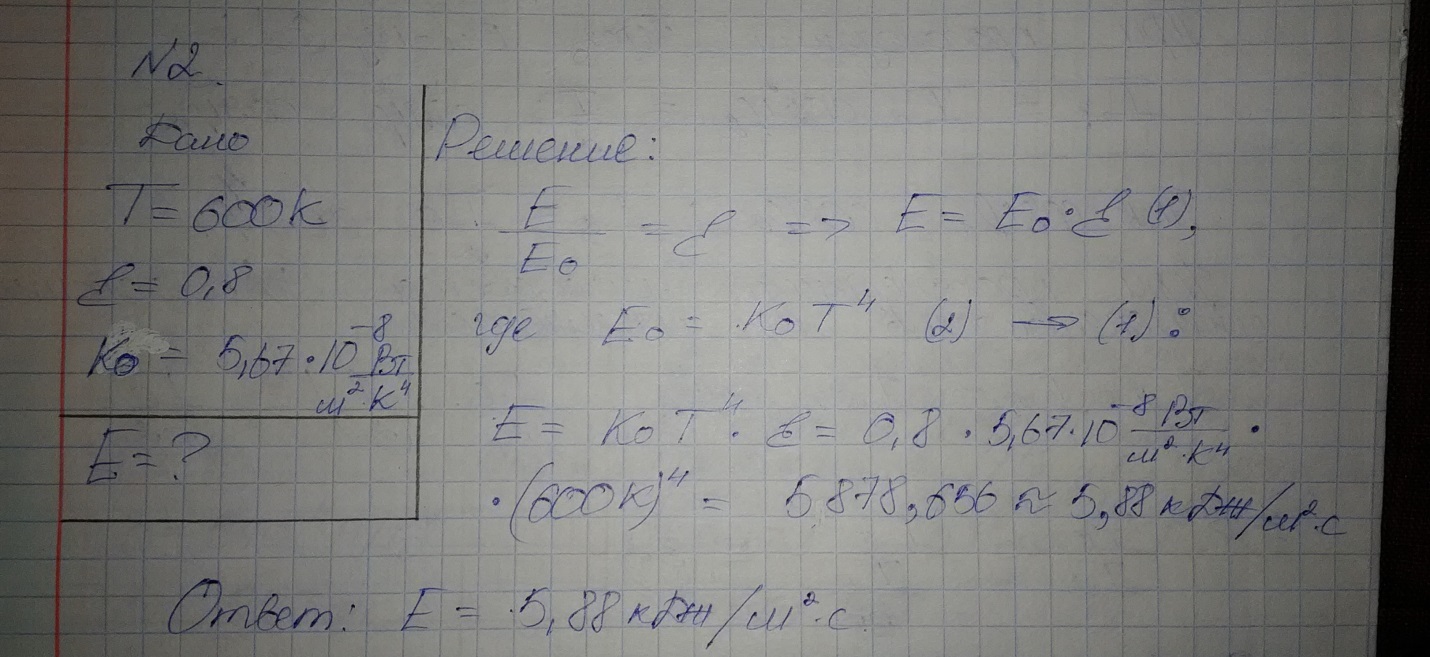 N2.
Дано
T = 600 K
ℰ = 0,8
K₀ = 5,67 · 10⁻⁸ Вт/м²·К⁴
E = ?
Решение:
E/E₀ = ℰ => E = E₀ · ℰ (1),
где E₀ = K₀T⁴ (2) → (1) :
E = K₀T⁴ · ℰ = 0,8 · 5,67 · 10⁻⁸ Вт/м²·К⁴ ·
· (600К)⁴ = 5878,656 ≈ 5,88 кДж/м²·с
Ответ: E = 5,88 кДж/м²·с.